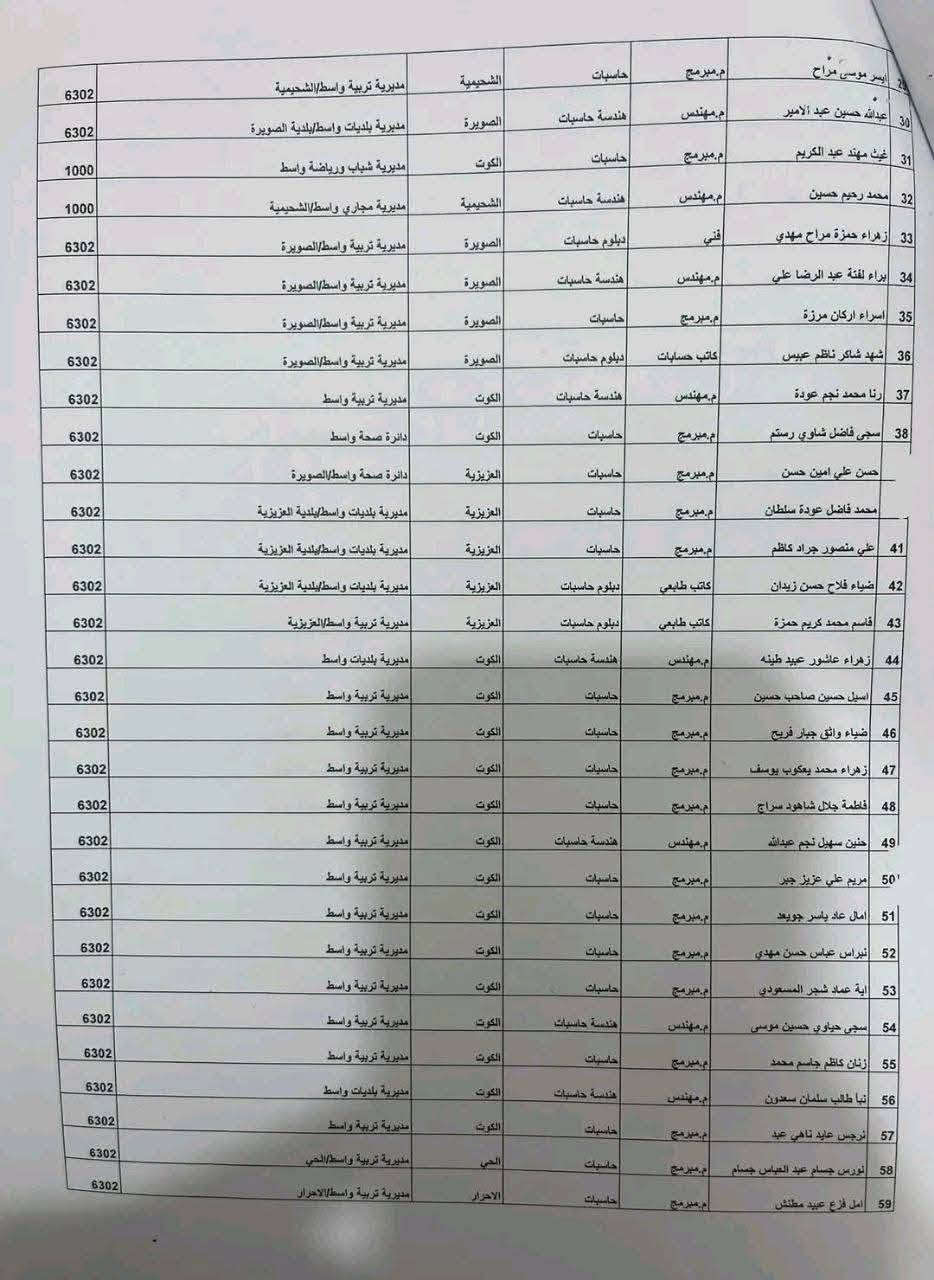 29 ايسر موسى مراح م.مبرمج حاسبات الشحيمية مديرية تربية واسط/الشحيمية 6302
30 عبدالله حسين عبد الامير م.مهندس هندسة حاسبات الصويرة مديرية بلديات واسط/بلدية الصويرة 6302
31 غيث مهند عبد الكريم م.مبرمج حاسبات الكوت مديرية شباب ورياضة واسط 1000
32 محمد رحيم حسين م.مهندس هندسة حاسبات الشحيمية مديرية مجاري واسط/الشحيمية 1000
33 زهراء حمزة مراح مهدي فني دبلوم حاسبات الصويرة مديرية تربية واسط/الصويرة 6302
34 براء لفتة عبد الرضا علي م.مهندس هندسة حاسبات الصويرة مديرية تربية واسط/الصويرة 6302
35 اسراء اركان مرزة م.مبرمج حاسبات الصويرة مديرية تربية واسط/الصويرة 6302
36 شهد شاكر ناظم عبيس كاتب حسابات دبلوم حاسبات الصويرة مديرية تربية واسط/الصويرة 6302
37 رنا محمد نجم عودة م.مهندس هندسة حاسبات الكوت مديرية تربية واسط 6302
38 سجى فاضل شاوي رستم م.مبرمج حاسبات الكوت دائرة صحة واسط 6302
حسن علي امين حسن م.مبرمج حاسبات العزيزية دائرة صحة واسط/الصويرة 6302
محمد فاضل عودة سلطان م.مبرمج حاسبات العزيزية مديرية بلديات واسط/بلدية العزيزية 6302
41 علي منصور جراد كاظم م.مبرمج حاسبات العزيزية مديرية بلديات واسط/بلدية العزيزية 6302
42 ضياء فلاح حسن زيدان كاتب طابعي دبلوم حاسبات العزيزية مديرية بلديات واسط/بلدية العزيزية 6302
43 قاسم محمد كريم حمزة كاتب طابعي دبلوم حاسبات العزيزية مديرية تربية واسط/العزيزية 6302
44 زهراء عاشور عبيد طينه م.مهندس هندسة حاسبات الكوت مديرية بلديات واسط 6302
45 اسيل حسين صاحب حسين م.مبرمج حاسبات الكوت مديرية تربية واسط 6302
46 ضياء واثق جبار فريح م.مبرمج حاسبات الكوت مديرية تربية واسط 6302
47 زهراء محمد يعكوب يوسف م.مبرمج حاسبات الكوت مديرية تربية واسط 6302
48 فاطمة جلال شاهود سراج م.مبرمج حاسبات الكوت مديرية تربية واسط 6302
49 حنين سهيل نجم عبدالله م.مهندس هندسة حاسبات الكوت مديرية تربية واسط 6302
50 مريم علي عزيز جبر م.مبرمج حاسبات الكوت مديرية تربية واسط 6302
51 امال عاد ياسر جويعد م.مبرمج حاسبات الكوت مديرية تربية واسط 6302
52 نبراس عباس حسن مهدي م.مبرمج حاسبات الكوت مديرية تربية واسط 6302
53 اية عماد شجر المسعودي م.مبرمج حاسبات الكوت مديرية تربية واسط 6302
54 سجى حياوي حسين موسى م.مهندس هندسة حاسبات الكوت مديرية تربية واسط 6302
55 زنان كاظم جاسم محمد م.مبرمج حاسبات الكوت مديرية تربية واسط 6302
56 نبأ طالب سلمان سعدون م.مهندس هندسة حاسبات الكوت مديرية بلديات واسط 6302
57 نرجس عايد ناهي عبد م.مبرمج حاسبات الكوت مديرية تربية واسط 6302
58 نورس جسام عبد العباس جسام م.مبرمج حاسبات الحي مديرية تربية واسط/الحي 6302
59 امل فزع عبيد مطنش م.مبرمج حاسبات الاحرار مديرية تربية واسط/الاحرار 6302